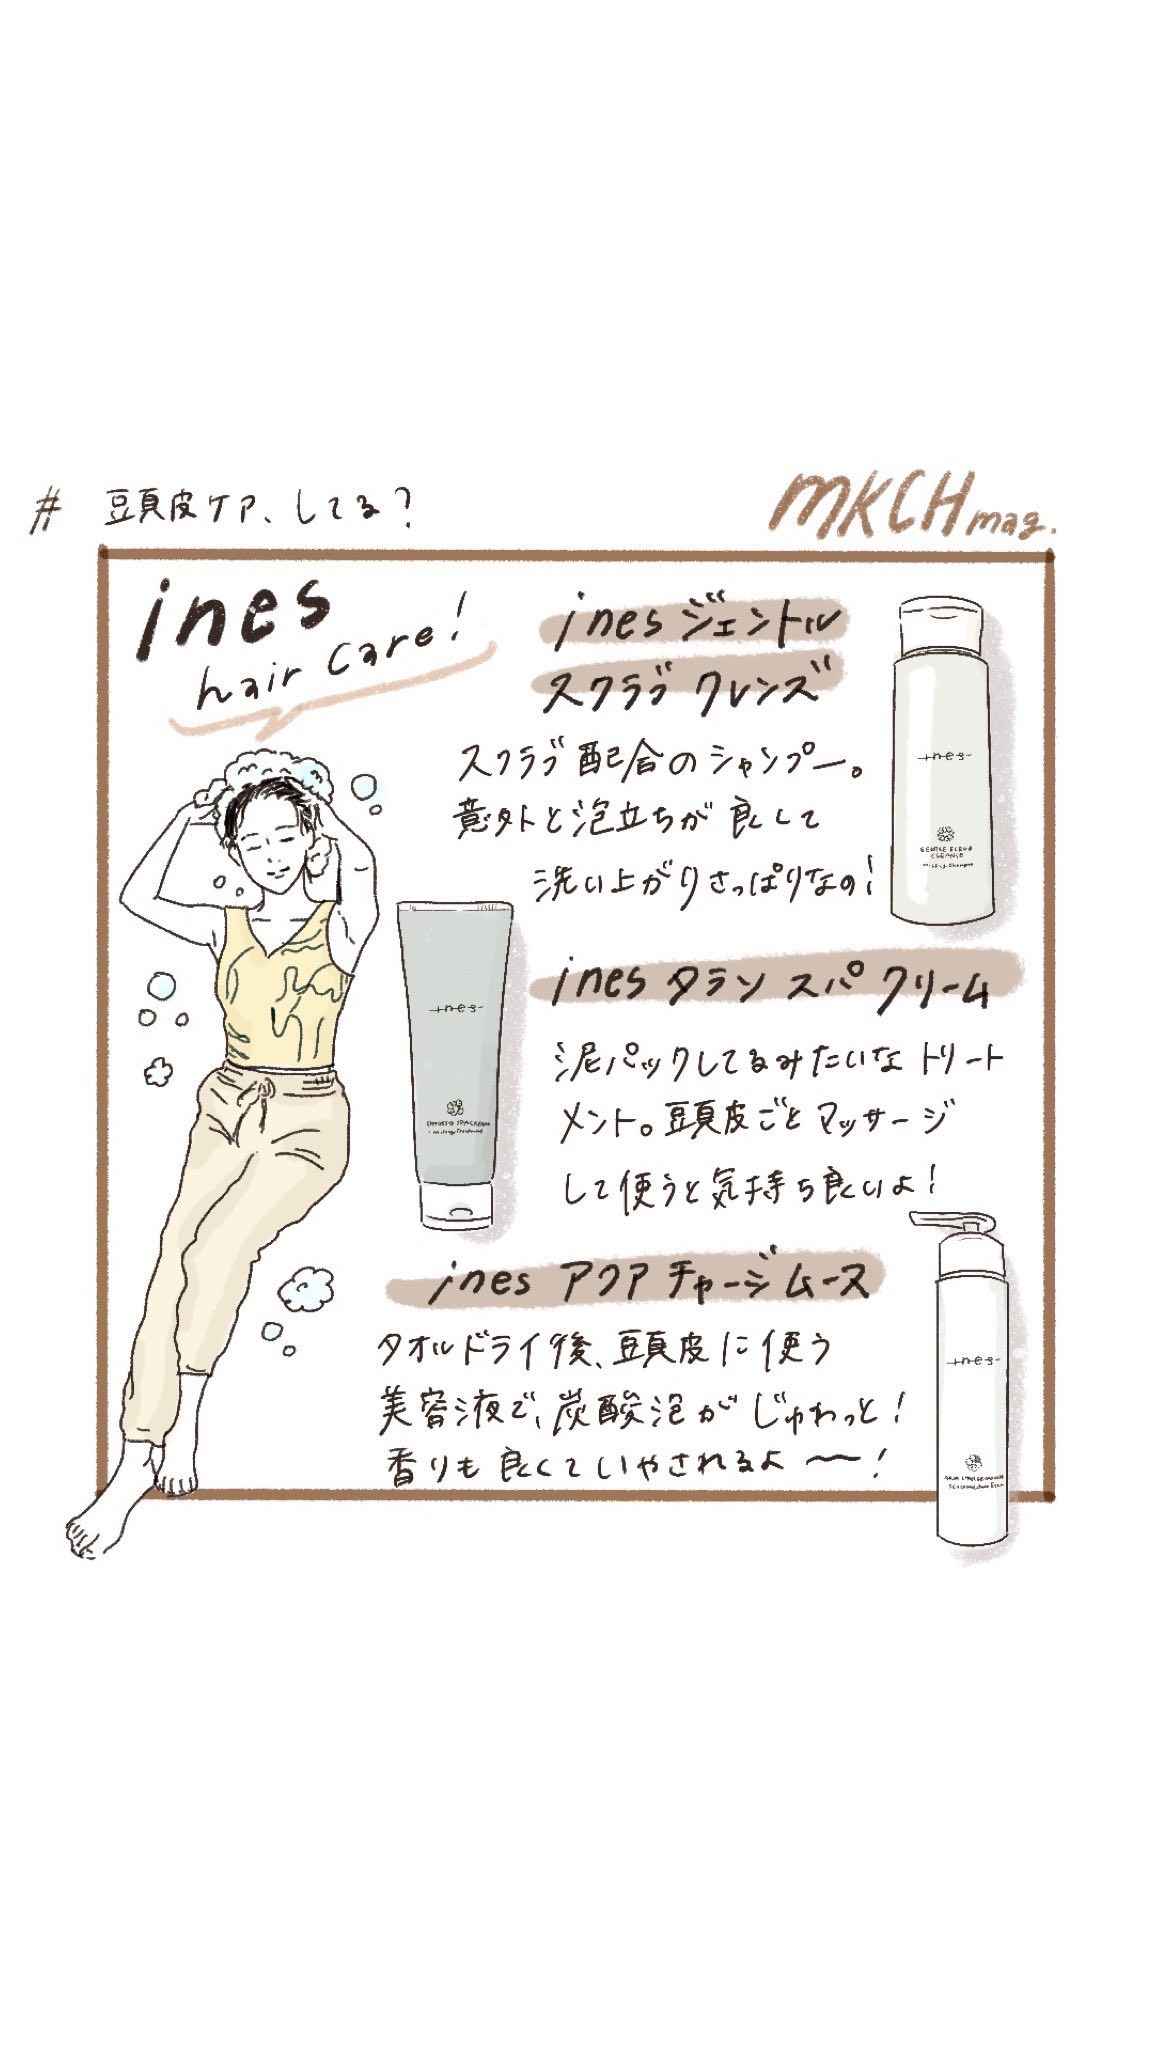 # 頭皮ケア、してる？
MKCH mag.
ines
hair care!
ines ジェントル
スクラブ クレンズ
スクラブ配合のシャンプー。
意外と泡立ちが良くて
洗い上がりさっぱりなの！
-ines-
GENTLE SCRUB
CLEANSE
ines タラソ スパ クリーム
泥パックしてるみたいなトリート
メント。頭皮ごとマッサージ
して使うと気持ち良いよ！
-ines-
ines アクア チャージ ムース
タオルドライ後、頭皮に使う
美容液で、炭酸泡がじゅわっと！
香りも良くていやされるよ〜！
-ines-